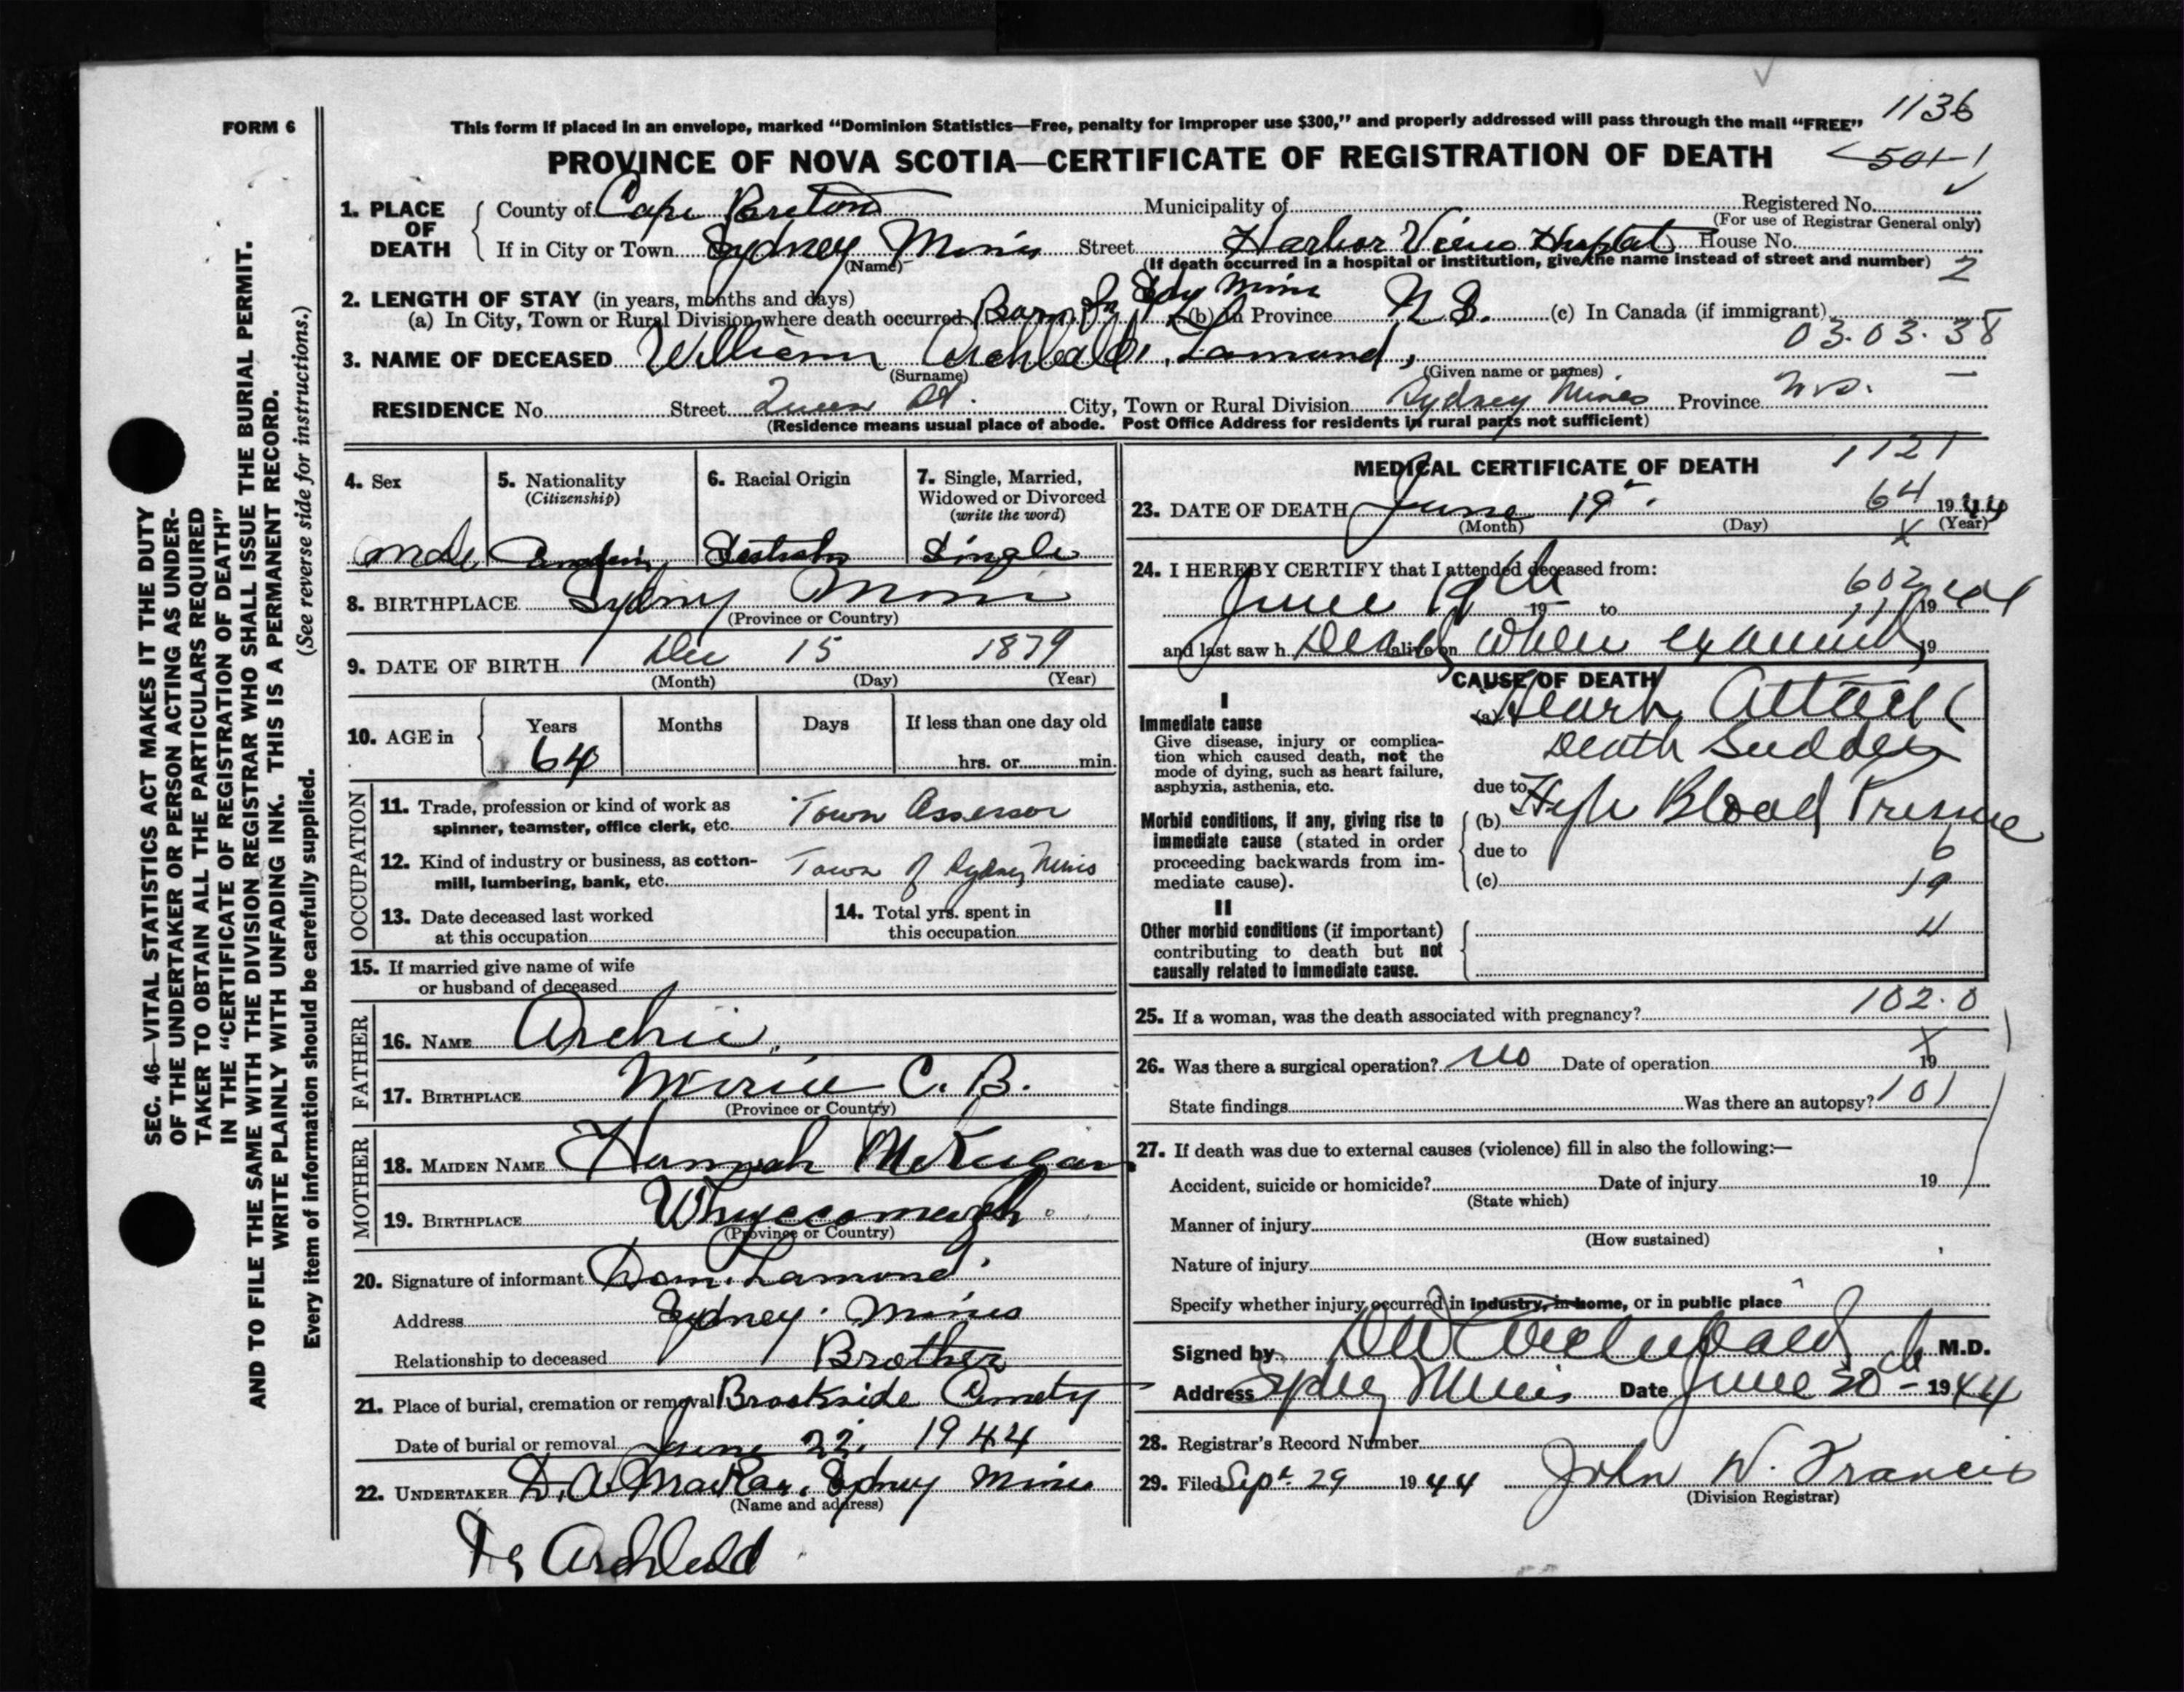 1136
FORM 6
This form if placed in an envelope, marked “Dominion Statistics—Free, penalty for improper use $300,” and properly addressed will pass through the mail “FREE”
PROVINCE OF NOVA SCOTIA—CERTIFICATE OF REGISTRATION OF DEATH
501-1
1. PLACE OF DEATH
County of Cape Breton Municipality of Registered No.
(For use of Registrar General only)
If in City or Town Sydney Mines Street Harbor View Hospital House No.
(Name) (If death occurred in a hospital or institution, give the name instead of street and number) 2
2. LENGTH OF STAY (in years, months and days)
(a) In City, Town or Rural Division where death occurred Born In Sdy Mines (b) In Province N S. (c) In Canada (if immigrant)
03.03.38
3. NAME OF DECEASED William Archbald, Lamond,
(Surname) (Given name or names)
RESIDENCE No. Street Queen St. City, Town or Rural Division Sydney Mines Province N.S.
(Residence means usual place of abode. Post Office Address for residents in rural parts not sufficient)
4. Sex
male
5. Nationality
(Citizenship)
6. Racial Origin
7. Single, Married, Widowed or Divorced
(write the word)
Single
8. BIRTHPLACE Sydney Mines
(Province or Country)
9. DATE OF BIRTH Dec 15 1879
(Month) (Day) (Year)
10. AGE in
Years Months Days If less than one day old
64 hrs. or min.
OCCUPATION
11. Trade, profession or kind of work as
spinner, teamster, office clerk, etc. Town Assessor
12. Kind of industry or business, as cotton-
mill, lumbering, bank, etc. Town of Sydney Mines
13. Date deceased last worked
at this occupation
14. Total yrs. spent in
this occupation
15. If married give name of wife
or husband of deceased
FATHER
16. NAME Archie
17. BIRTHPLACE C. B.
(Province or Country)
MOTHER
18. MAIDEN NAME Hannah
19. BIRTHPLACE Whycocomagh
(Province or Country)
20. Signature of informant Dom. Lamond
Address Sydney Mines
Relationship to deceased Brother
21. Place of burial, cremation or removal Brookside Cemety
Date of burial or removal June 22, 1944
22. UNDERTAKER D. A. MacRae, Sydney Mines
(Name and address)
Dr Archbald
MEDICAL CERTIFICATE OF DEATH 1121
64
23. DATE OF DEATH June 19 1944
(Month) (Day) (Year)
X
24. I HEREBY CERTIFY that I attended deceased from:
602
June 19th 19 to 11 1944
and last saw h Dead alive on When examined 19
CAUSE OF DEATH
I
Immediate cause
Give disease, injury or complica-
tion which caused death, not the
mode of dying, such as heart failure,
asphyxia, asthenia, etc.
(a) Heart Attack
Death Sudden
due to
Morbid conditions, if any, giving rise to
immediate cause (stated in order
proceeding backwards from im-
mediate cause).
(b) High Blood Pressure
due to 6
(c) 19
II
Other morbid conditions (if important)
contributing to death but not
causally related to immediate cause.
4
102.0
25. If a woman, was the death associated with pregnancy?
26. Was there a surgical operation? no Date of operation 19
X
State findings Was there an autopsy? 101
27. If death was due to external causes (violence) fill in also the following:—
Accident, suicide or homicide? Date of injury 19
(State which)
Manner of injury
(How sustained)
Nature of injury
Specify whether injury occurred in industry, in home, or in public place
Signed by DW Archibald M.D.
Address Sydney Mines Date June 20th 1944
28. Registrar's Record Number
29. Filed Sept 29 1944 John W. Francis
(Division Registrar)
SEC. 46—VITAL STATISTICS ACT MAKES IT THE DUTY
OF THE UNDERTAKER OR PERSON ACTING AS UNDER-
TAKER TO OBTAIN ALL THE PARTICULARS REQUIRED
IN THE “CERTIFICATE OF REGISTRATION OF DEATH”
AND TO FILE THE SAME WITH THE DIVISION REGISTRAR WHO SHALL ISSUE THE BURIAL PERMIT.
WRITE PLAINLY WITH UNFADING INK. THIS IS A PERMANENT RECORD.
Every item of information should be carefully supplied. (See reverse side for instructions.)